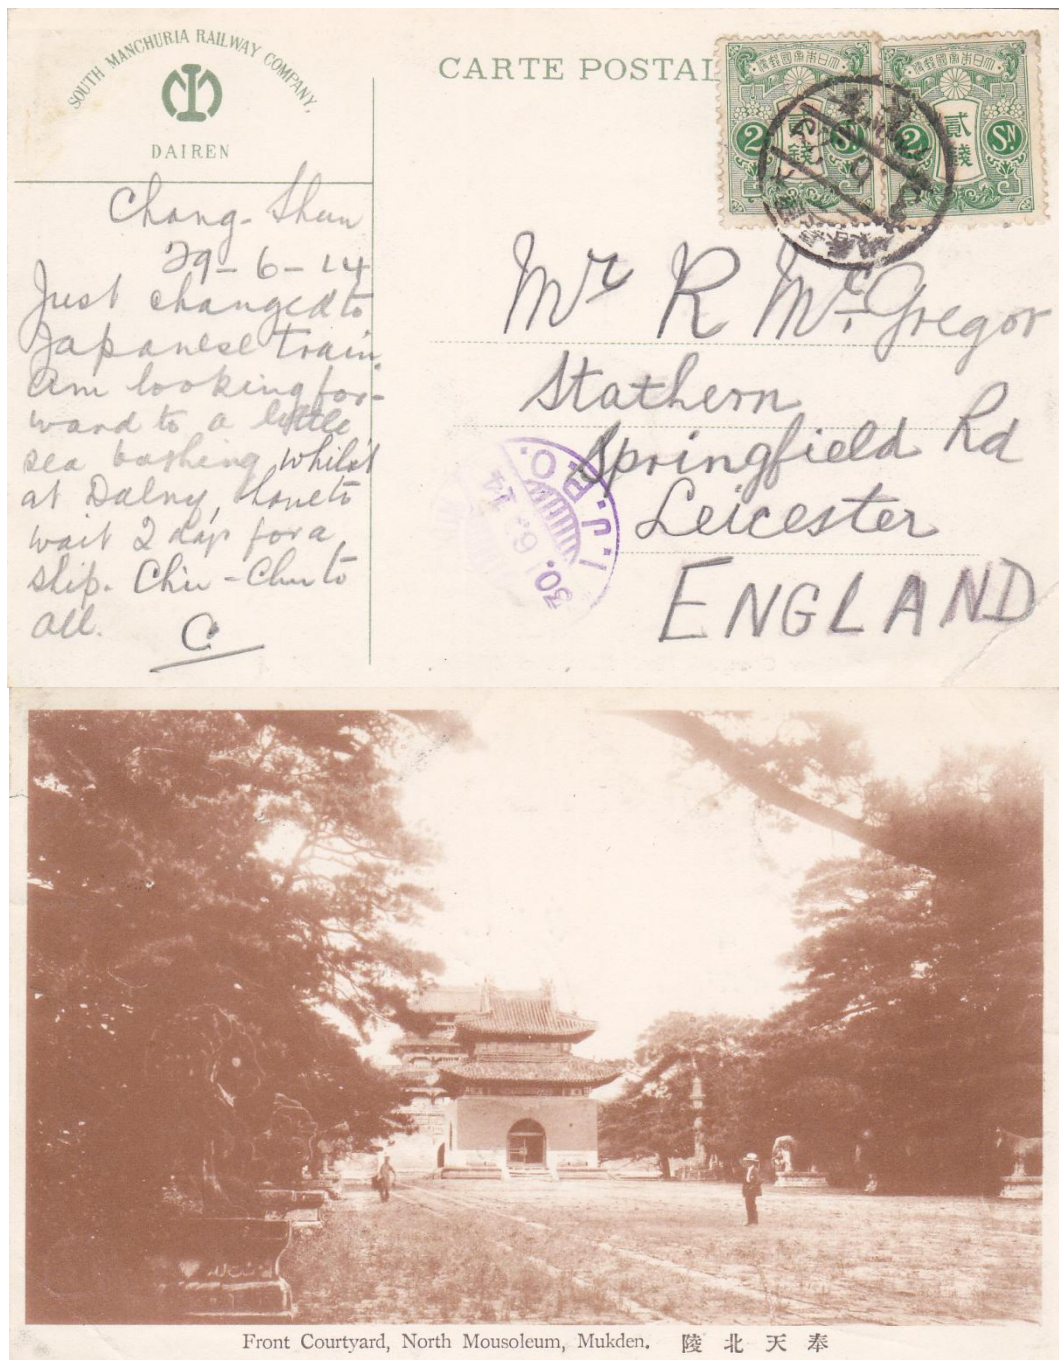 SOUTH MANCHURIA RAILWAY COMPANY,
DAIREN
CARTE POSTAL
大日本帝國郵便
貳錢
2 SN
大日本帝國郵便
貳錢
2 SN
Chang-Shun
29-6-14
Just changed to
Japanese train.
Am looking for-
ward to a little
sea bathing whilst
at Dalny, have to
wait 2 days for a
ship. Chin-Chin to
all.
C
Mr R McGregor
Stathern
Springfield Rd
Leicester
ENGLAND
I.J.P.O.
30. 6. 14
Front Courtyard, North Mousoleum, Mukden. 陵北天奉